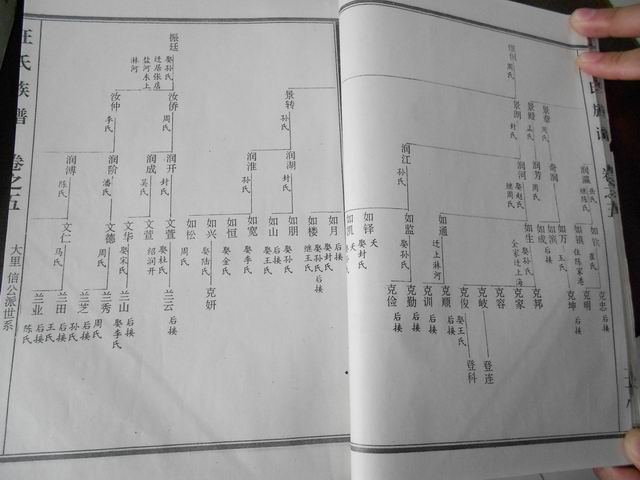 汪氏族谱 卷之五
大里 信公派世系
振廷
娶孙氏
迁居张店
盐河水上
淋河
汝仲
李氏
汝侨
周氏
景转
孙氏
润溥
陈氏
润阶
潘氏
润成
吴氏
润开
封氏
润淮
孙氏
润湖
封氏
文仁
马氏
文德
周氏
文华
娶宋氏
文萱
绍润开
文萱
娶杜氏
如松
周氏
如兴
娶陆氏
如恒
娶金氏
如宽
娶李氏
如山
娶王氏
后接
如朋
娶孙氏
如楼
娶孙氏
继王氏
后接
如月
娶封氏
后接
兰业
陈氏
后接
兰田
王氏
后接
兰芝
孙氏
后接
兰秀
周氏
兰山
娶李氏
后接
兰云
后接
克妍
周氏
景朗
封氏
景殿
孟氏
景春
周氏
润江
孙氏
润河
娶赵氏
继周氏
润芳
周氏
奇润
润瀛
岳氏
继陈氏
如凯
夭
如铎
娶封氏
夭
如监
娶孙氏
如通
迁上淋河
如生
娶孙氏
全家迁上海
如成
后接
如滨
后接
如万
王氏
如镇
住陈家港
如钦
董氏
克俭
后接
克勤
后接
克训
后接
克顺
后接
克俊
娶王氏
克岐
克容
克家
克邦
克坤
后接
克明
后接
克忠
后接
登科
登连